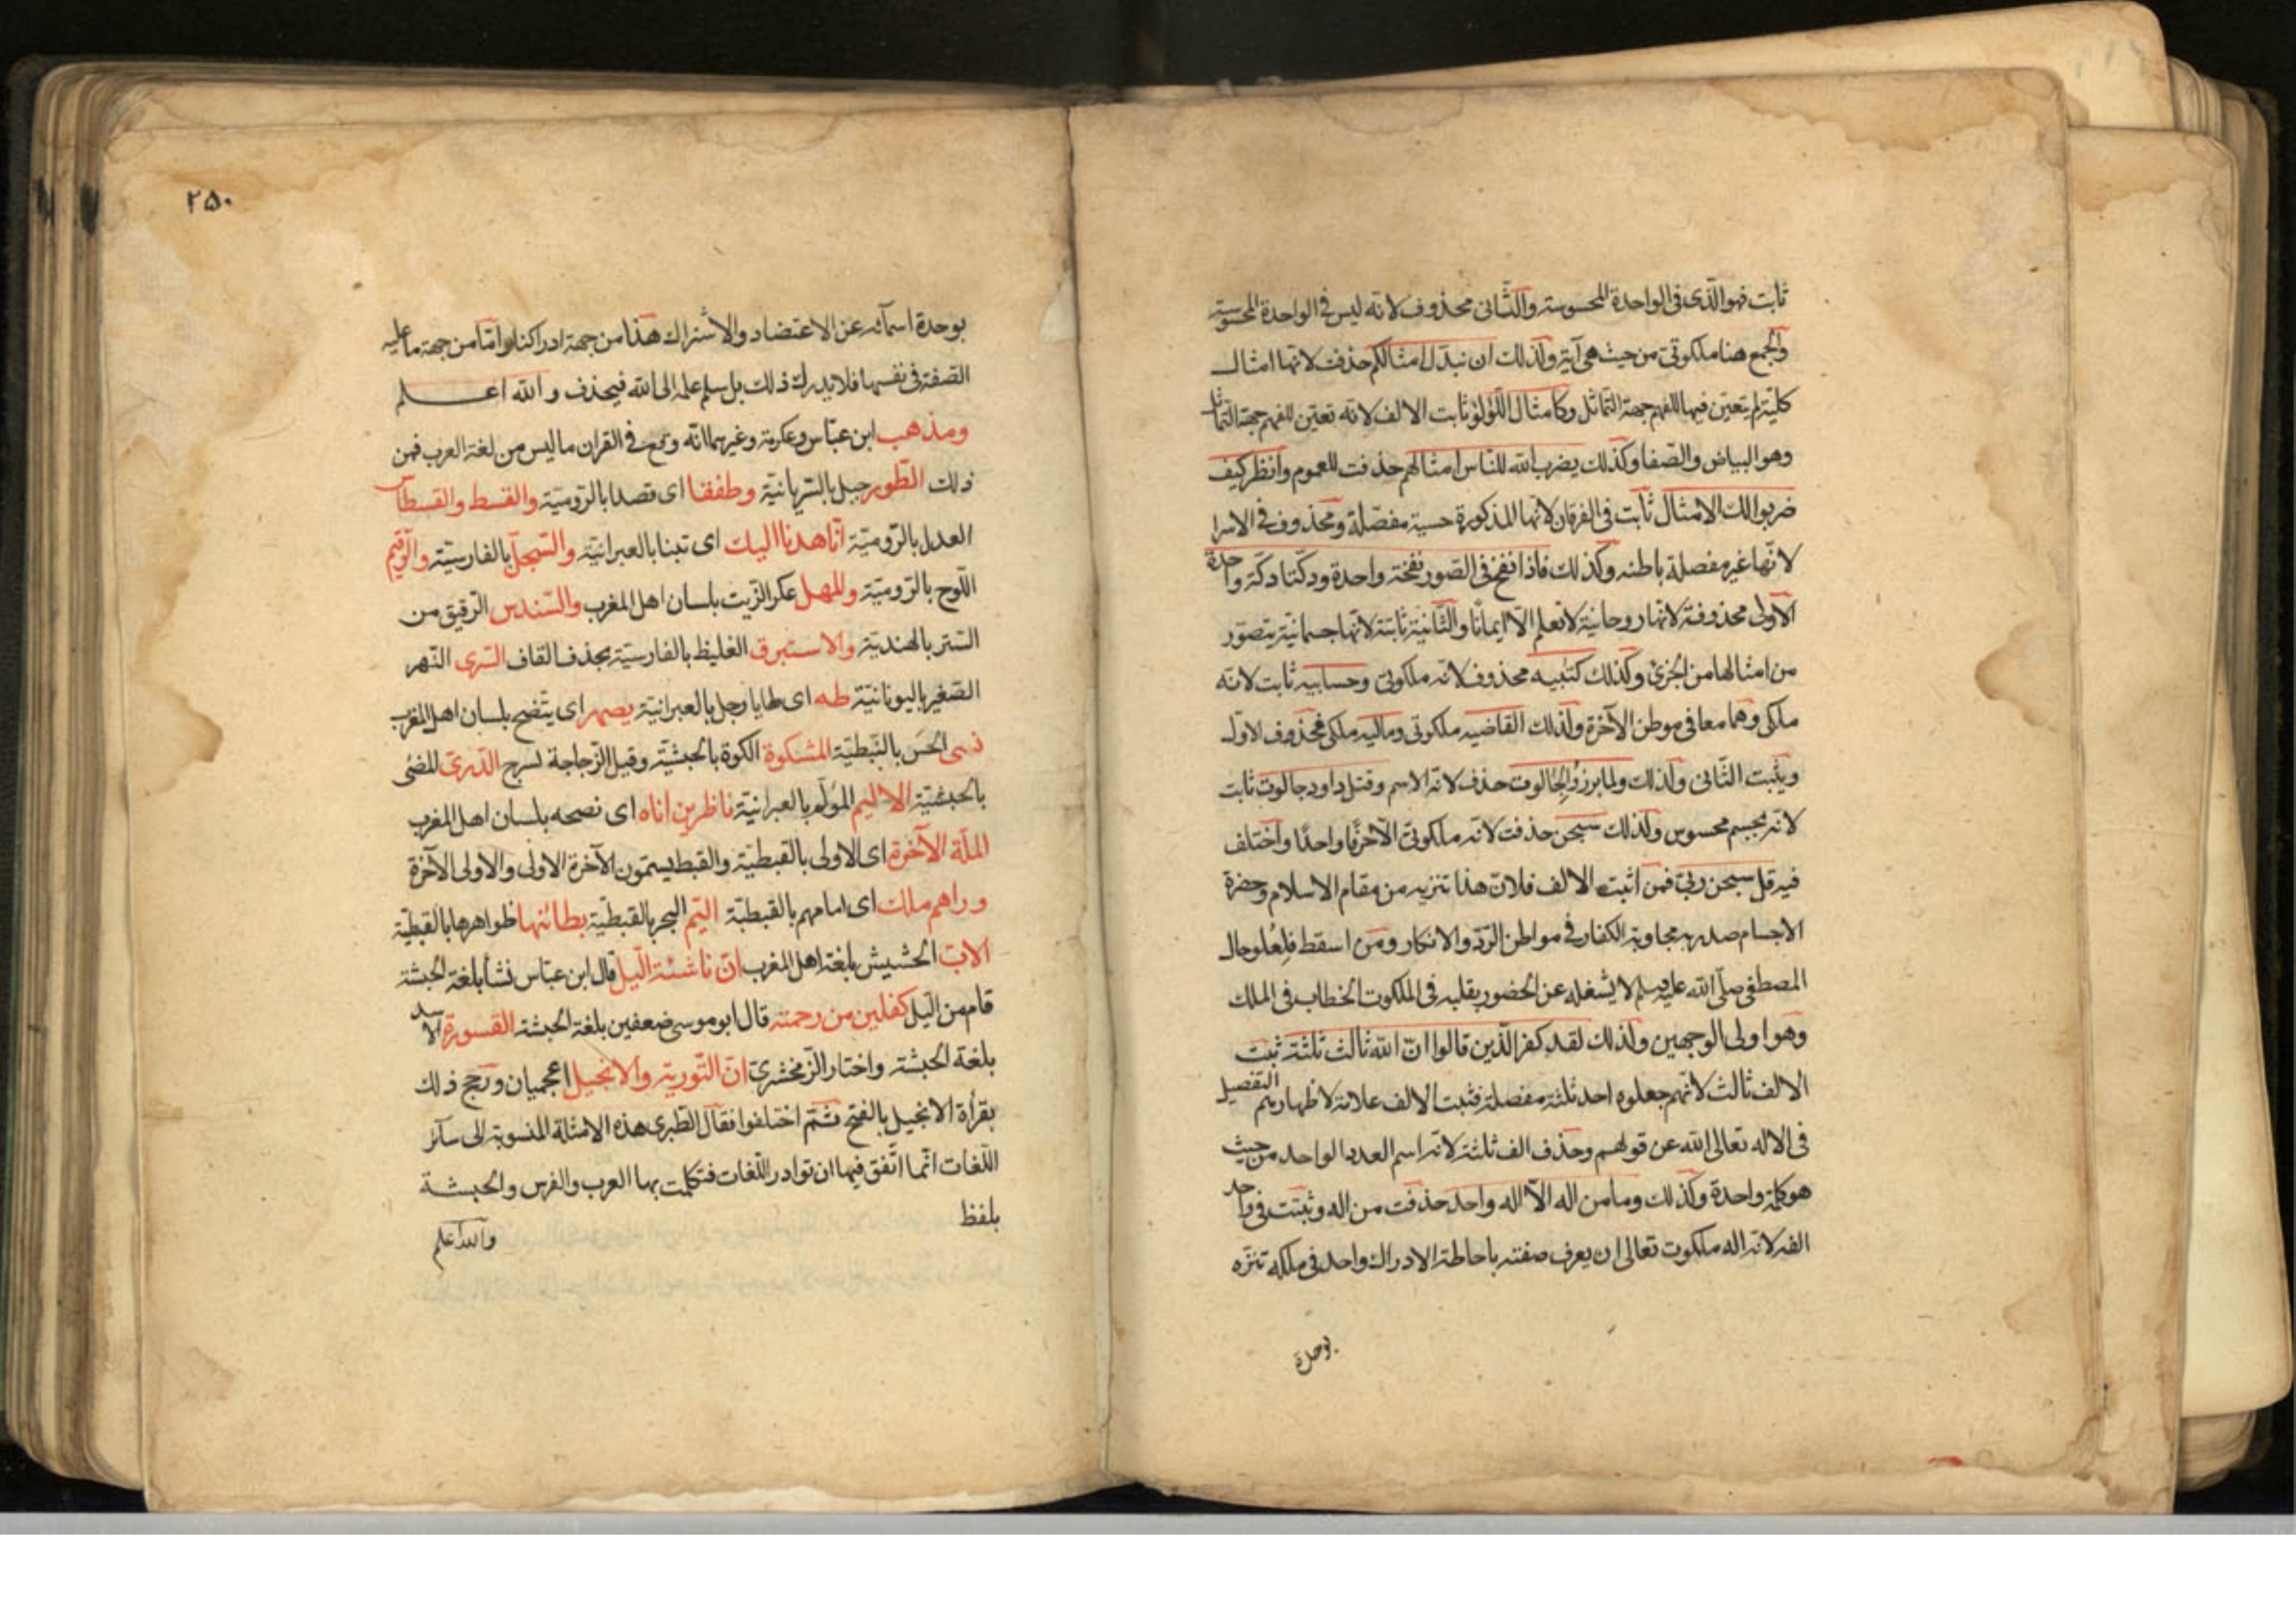 ثابت فهو الذى فى الواحدة المحسوسة والثانى محذوف لانه ليس فى الواحدة المحسوسة
والجمع هنا ملكوتى من حيث هى آية وكذلك ان نبدل امثالكم حذفت لانها امثال
كلية لم يتعين فيها للفهم جهة التماثل وكامثال اللؤلؤ ثابت الالف لانه تعين للفهم جهة التماثل
وهو البياض والصفا وكذلك يضرب الله للناس امثالهم حذفت للعموم وانظر كيف
ضربوا لك الامثال ثابت فى الفرقان لانها المذكورة حسية مفصلة ومحذوف فى الاسرا
لانها غير مفصلة باطنه وكذلك فاذا نفخ فى الصور نفخة واحدة ودكتا دكة واحدة
الاولى محذوفة لانها روحانية لا تعلم الا ايمانا والثانية ثابتة لانها جسمانية يتصور
من امثالها من الجزئ وكذلك كتبيه محذوف لانه ملكوتى وحسابيه ثابت لانه
ملكى وهما معا فى موطن الآخرة وكذلك القاضيه ملكوتى وماليه ملكى فمحذوف الاول
ويثبت الثانى وكذلك ولما برزوا لجالوت حذف لانه الاسم وقتل داود جالوت ثابت
لانه مجسم محسوس وكذلك سبحن حذفت لانه ملكوتى الا حرفا واحدا واختلف
فيه قل سبحن ربى فمن اثبت الالف فلان هذا تنزيه من مقام الاسلام وحضرة
الاجسام صدر به مجاوبة الكفار فى مواطن الرد والانكار ومن اسقط فلعلو حال
المصطفى صلى الله عليه وسلم لا يشغله عن الحضور بقلبه فى الملكوت الخطاب فى الملك
وهو اولى الوجهين وكذلك لقد كفر الذين قالوا ان الله ثالث ثلثة ثبت
الالف ثالث لانهم جعلوه احد ثلثة مفصلة فثبت الالف علامة لاظهارهم التفصيل
فى الاله تعالى الله عن قولهم وحذف الف ثلثة لانه اسم العدد الواحد من حيث
هو كلمة واحدة وكذلك وما من اله الا اله واحد حذفت من اله وثبتت فى واحد
الفه لانه اله ملكوت تعالى ان يعرف صفته باحاطة الادراك واحد فى ملكه تنزه
بوحدة
٢٥٠
بوحدة اسمآئه عن الاعتضاد والاشتراك هذا من جهة ادراكنا واما من جهة ما عليه
الصفة فى نفسها فلا يدرك ذلك بل سلم علمه الى الله فيحذف والله اعلم
ومذهب ابن عباس وعكرمة وغيرهما انه وقع فى القران ما ليس من لغة العرب فمن
ذلك الطور جبل بالسريانية وطفقا اى قصدا بالرومية والقسط والقسطاس
العدل بالرومية انا هدنا اليك اى تبنا بالعبرانية والسجل بالفارسية والرقيم
اللوح بالرومية والمهل عكر الزيت بلسان اهل المغرب والسندس الرقيق من
الستر بالهندية والاستبرق الغليظ بالفارسية بحذف القاف السرى النهر
الصغير باليونانية طه اى طايا رجل بالعبرانية يصهر اى ينضج بلسان اهل المغرب
نسى الحسن بالنبطية المشكوة الكوة بالحبشية وقيل الزجاجة تسرج الدرى المضئ
بالحبشية الاليم المؤلم بالعبرانية ناظرين اناه اى نضجه بلسان اهل المغرب
الملة الآخرة اى الاولى بالقبطية والقبط يسمون الآخرة الاولى والاولى الآخرة
وراهم ملك اى امامهم بالقبطية اليم البحر بالقبطية بطائنها ظواهرها بالقبطية
الاب الحشيش بلغة اهل المغرب ان ناشئة اليل قال ابن عباس نشأ بلغة الحبشة
قام من اليل كفلين من رحمته قال ابو موسى ضعفين بلغة الحبشة القسورة الاسد
بلغة الحبشة واختار الزمخشرى ان التورية والانجيل اعجميان ورجح ذلك
بقرأة الانجيل بالفتح ثم اختلفوا فقال الطبرى هذه الامثلة المنسوبة الى سآئر
اللغات انما اتفق فيها ان توادر اللغات فتكلمت بها العرب والفرس والحبشة
بلفظ
والله اعلم